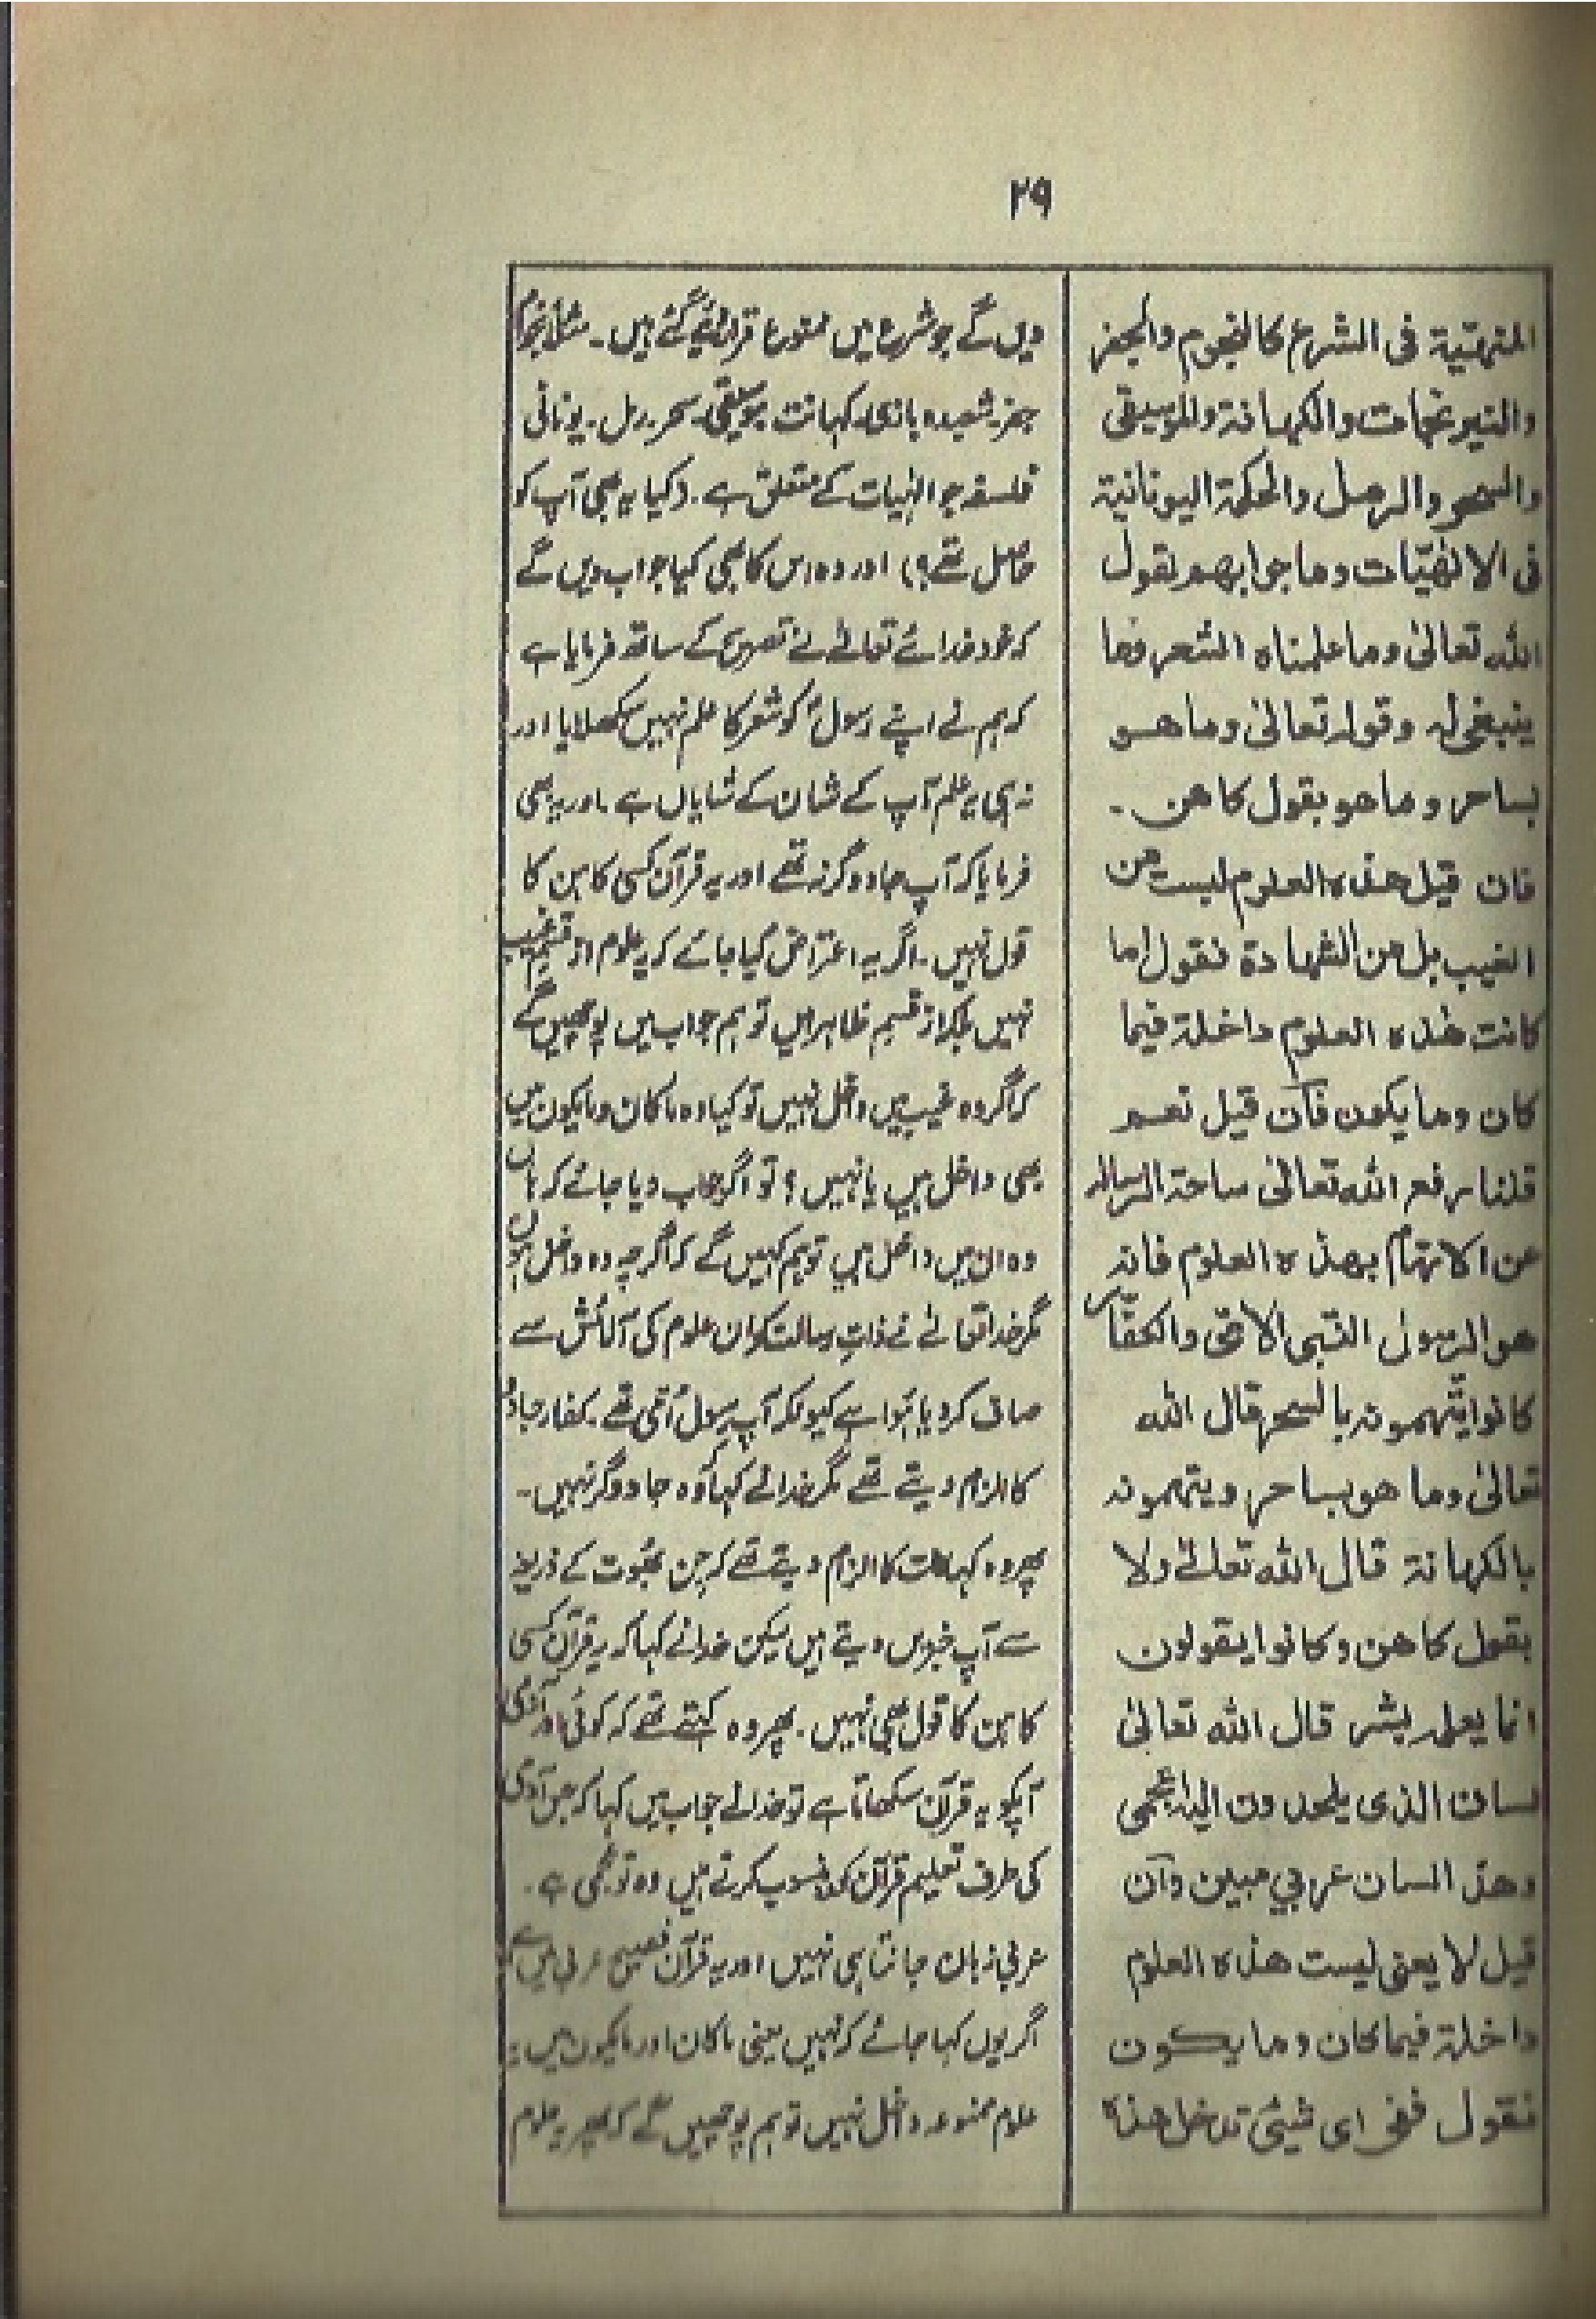 ٢٩
المنهيّة فى الشرع كالنجوم والجفر
والنيرنجات والكهانة والموسيقى
والسحر والرمل والحكمة اليونانية
فى الالٰهيّات وما جوابهم لقول
الله تعالىٰ وما علمناه الشعر وما
ينبغى له وقوله تعالىٰ وما هو
بساحر وما هو بقول كاهن ۔
فان قيل هذه العلوم ليست من
الغيب بل من الشهادة نقول اما
كانت هذه العلوم داخلة فيما
كان وما يكون فان قيل نعم
قلنا رفع الله تعالىٰ ساحة الرسالة
عن الاتهام بهذه العلوم فانه
هو الرسول النبى الامّى والكفّار
كانوا يتّهمونه بالسحر قال الله
تعالىٰ وما هو بساحر ويتهمونه
بالكهانة قال الله تعالےٰ ولا
بقول كاهن وكانوا يقولون
انما يعلمه بشر قال الله تعالىٰ
لسان الذى يلحدون اليه اعجمى
وهذا لسان عربي مبين وان
قيل لا يعنى ليست هذه العلوم
داخلة فيما كان وما يكون
فنقول ففى اى شيئى تدخل هذه
دیں گے جو شرع میں ممنوع قرار دیئے گئے ہیں ۔ مثلاً نجوم
جفر۔ شعبدہ بازی۔ کہانت۔ موسیقی۔ سحر۔ رمل۔ یونانی
فلسفہ جو الٰہیات کے متعلق ہے ۔ (کیا یہ بھی آپ کو
حاصل تھے؟) اور وہ اس کا بھی کیا جواب دیں گے
کہ خود خدائے تعالےٰ نے تصریح کے ساتھ فرمایا ہے
کہ ہم نے اپنے رسولؐ کو شعر کا علم نہیں سکھلایا اور
نہ ہی یہ علم آپ کے شان کے شایاں ہے ۔ اور یہ بھی
فرمایا کہ آپ جادوگر نہ تھے اور یہ قرآن کسی کاہن کا
قول نہیں ۔ اگر یہ اعتراض کیا جائے کہ یہ علوم از قسم غیب
نہیں بلکہ از قسم ظاہر ہیں تو ہم جواب میں پوچھیں گے
کہ اگر وہ غیب میں داخل نہیں تو کیا وہ ما کان وما یکون میں
بھی داخل ہیں یا نہیں ؟ تو اگر جواب دیا جائے کہ ہاں
وہ ان میں داخل ہیں تو ہم کہیں گے کہ اگرچہ وہ داخل ہوں
مگر خدا تعالےٰ نے ذاتِ رسالت کو ان علوم کی آلائش سے
صاف کر دیا ہُوا ہے کیونکہ آپ رسول اُمّی تھے ۔ کفار جادو
کا الزام دیتے تھے مگر خدا نے کہا کہ وہ جادوگر نہیں۔
پھر وہ کہانت کا الزام دیتے تھے کہ جن بھوت کے ذریعہ
سے آپ خبریں دیتے ہیں لیکن خدا نے کہا کہ یہ قرآن کسی
کاہن کا قول بھی نہیں ۔ پھر وہ کہتے تھے کہ کوئی اور آدمی
آپکو یہ قرآن سکھاتا ہے تو خدا نے جواب میں کہا کہ جس آدمی
کی طرف تعلیم قرآن کو منسوب کرتے ہیں وہ تو عجمی ہے ۔
عربی زبان جانتا ہی نہیں اور یہ قرآن فصیح عربی میں ہے
اگر یوں کہا جائے کہ نہیں یعنی ما کان اور ما یکون میں یہ
علوم ممنوعہ داخل نہیں تو ہم پوچھیں گے کہ پھر یہ علوم